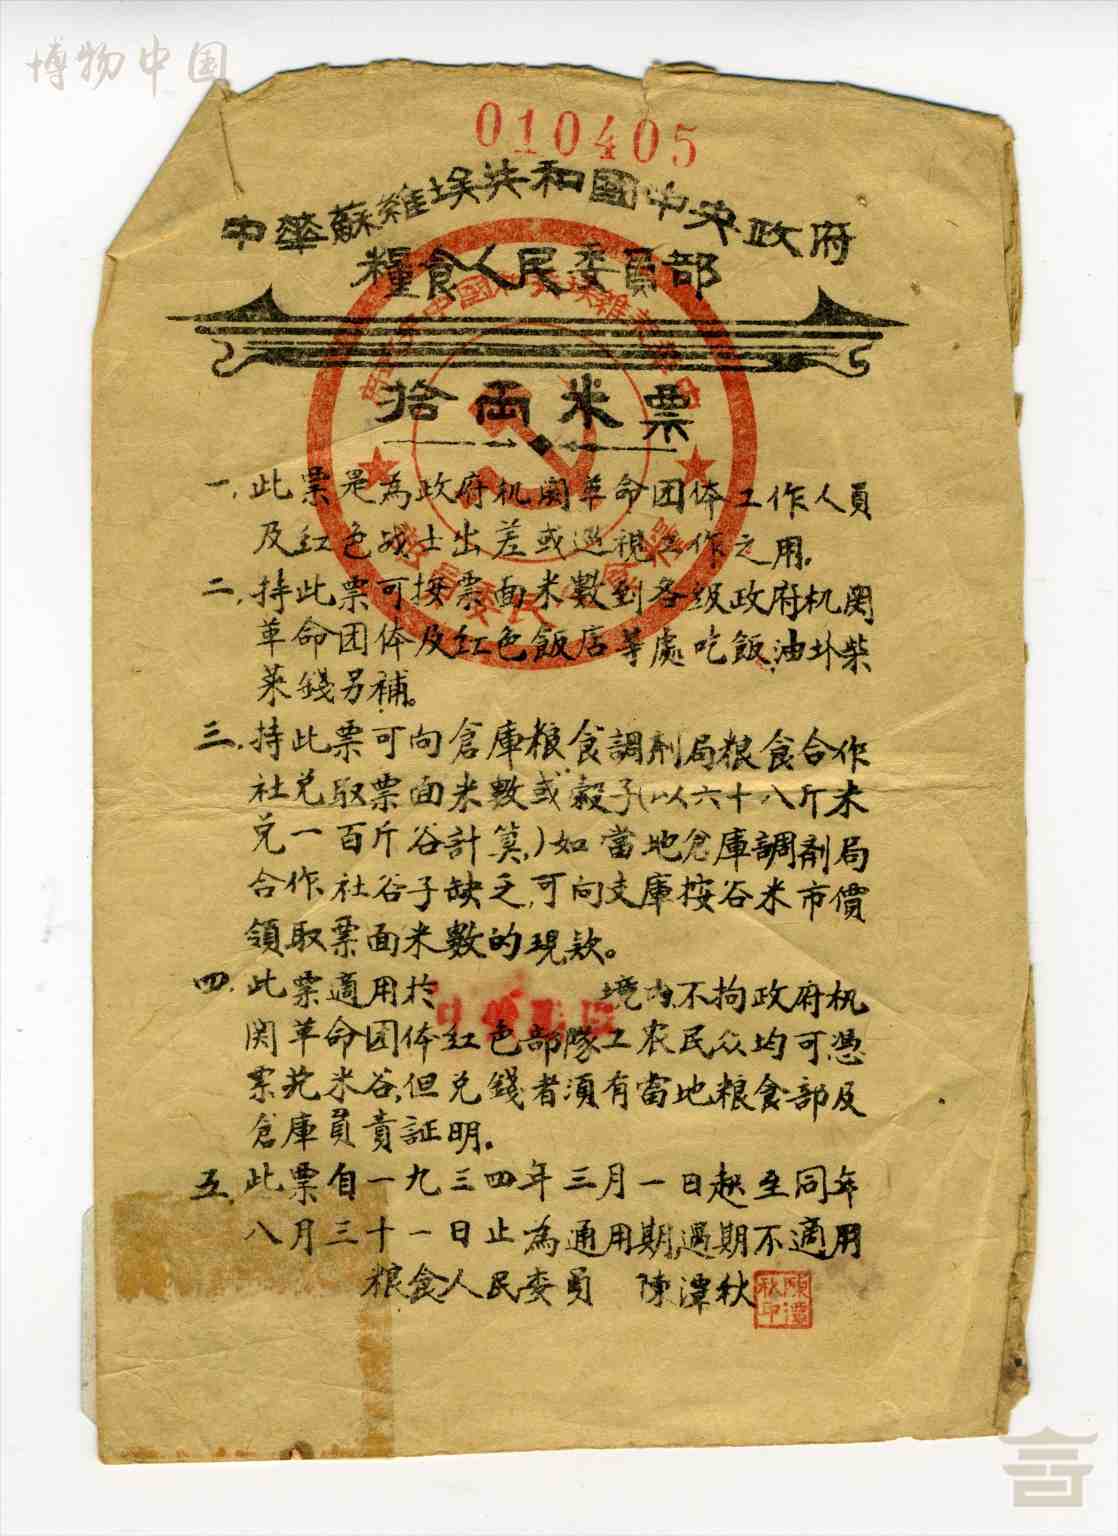 博物中国
010405
中華蘇維埃共和國中央政府
糧食人民委員部
拾兩米票
一,此票是為政府机関革命团体工作人員
及红色战士出差或巡視工作之用.
二,持此票可按票面米數到各级政府机関
革命团体及红色飯店等處吃飯,油盐柴
菜錢另補。
三,持此票可向倉庫粮食調剤局粮食合作
社兑取票面米數或穀子(以六十八斤米
兑一百斤谷計算,)如當地倉庫調剤局
合作社谷子缺乏,可向支庫按谷米市價
領取票面米數的現欵。
四,此票適用於 境内,不拘政府机
関革命团体红色部隊工农民众均可憑
票兑米谷,但兑錢者湏有當地粮食部及
倉庫負責証明.
五,此票自一九三四年三月一日起至同年
八月三十一日止為通用期,過期不適用
粮食人民委員 陳潭秋
陳潭秋印